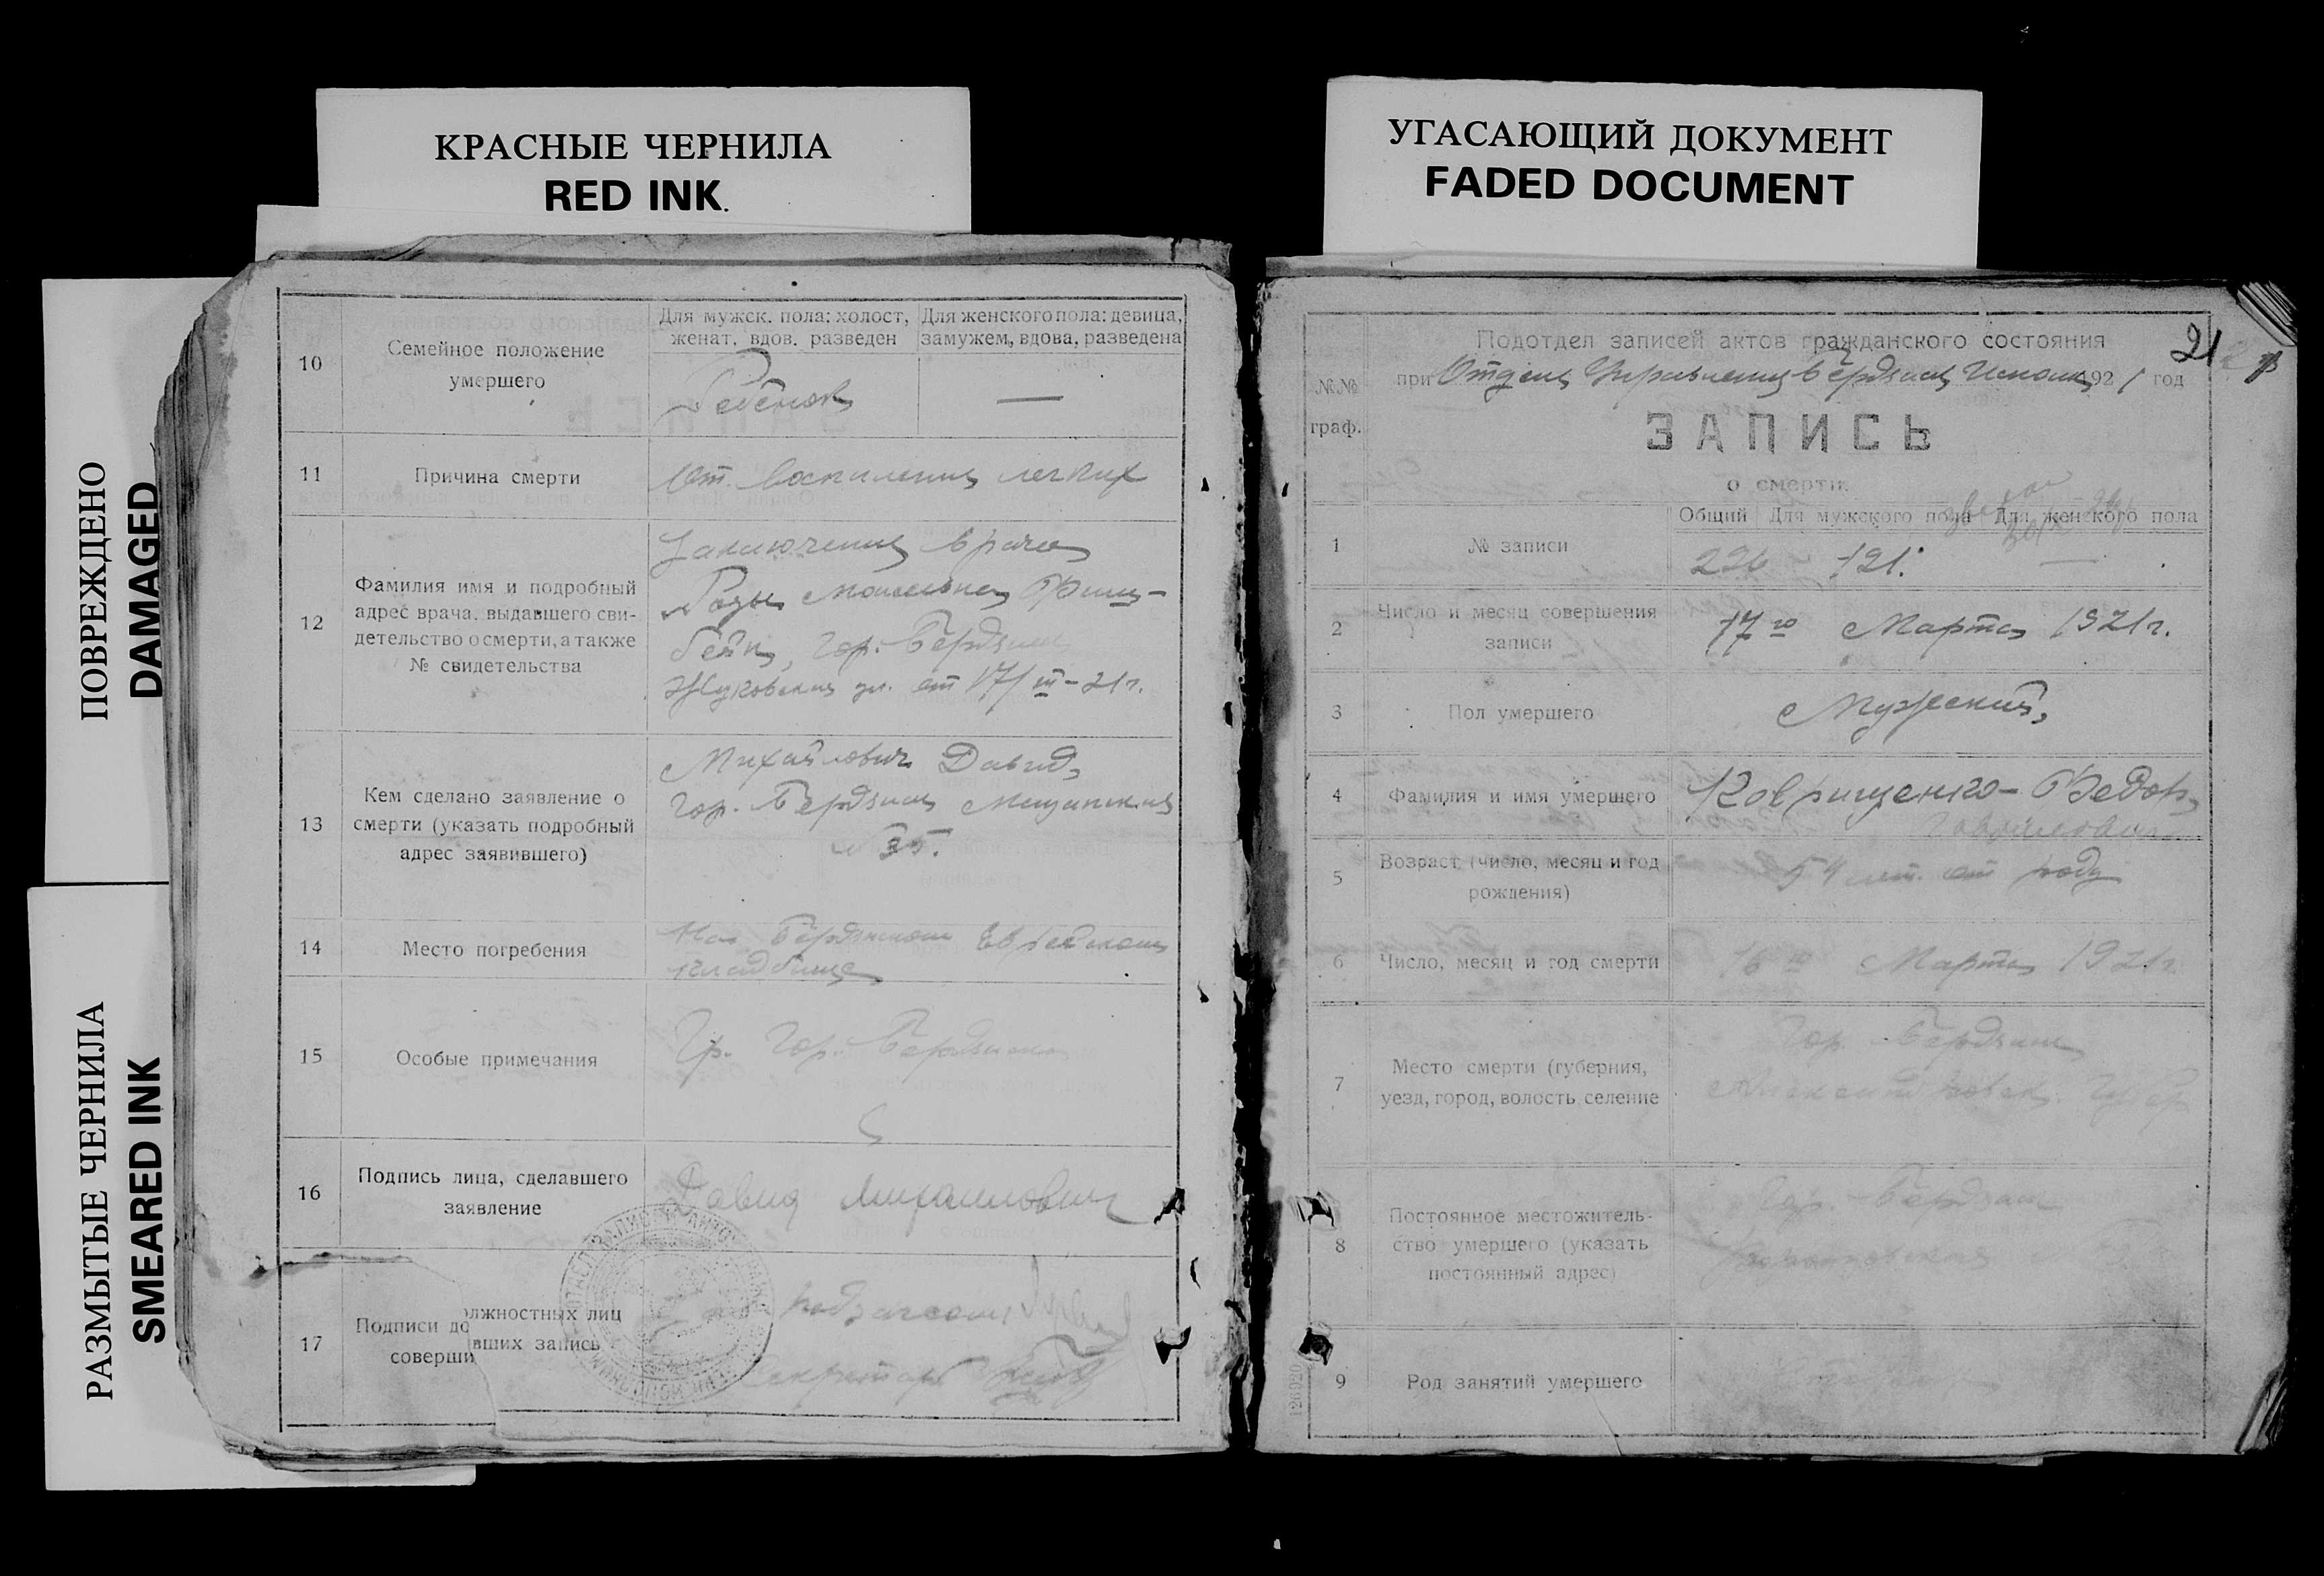 КРАСНЫЕ ЧЕРНИЛА
RED INK
УГАСАЮЩИЙ ДОКУМЕНТ
FADED DOCUMENT
ПОВРЕЖДЕНО
DAMAGED
РАЗМЫТЫЕ ЧЕРНИЛА
SMEARED INK
10
Семейное положение
умершего
Для мужск. пола: холост,
женат, вдов. разведен
Для женского пола: девица,
замужем, вдова, разведена
Ребенок
—
11
Причина смерти
От воспаления легких
12
Фамилия имя и подробный
адрес врача, выдавшего сви-
детельство о смерти, а также
№ свидетельства
Заключение врача
Розы
гор. Бердянск
Жуковская ул. от 17/III-21г.
13
Кем сделано заявление о
смерти (указать подробный
адрес заявившего)
Михайлович Давид,
гор. Бердянск Мещанская
№ 35.
14
Место погребения
На Бердянском Еврейском
кладбище
15
Особые примечания
Гр. гор. Бердянска
16
Подпись лица, сделавшего
заявление
Давид Михайлович
17
Подписи до
лжностных лиц
соверши
вших запись
Секретарь
№№
граф.
Подотдел записей актов гражданского состояния
21
при Отделе Управления Бердянск Исполк 1921 год
ЗАПИСЬ
о смерти
1
№ записи
Общий
Для мужского пола
Для женского пола
226
121.
—
2
Число и месяц совершения
записи
17го Марта 1921г.
3
Пол умершего
Мужеский,
4
Фамилия и имя умершего
Коврищенко - Федор,
5
Возраст (число, месяц и год
рождения)
54 лет. от роду
6
Число, месяц и год смерти
16го Марта 1921г.
7
Место смерти (губерния,
уезд, город, волость, селение
Гор. Бердянск
Александровск. Губер
8
Постоянное местожитель-
ство умершего (указать
постоянный адрес)
Гор. Бердянск
9
Род занятий умершего
126020